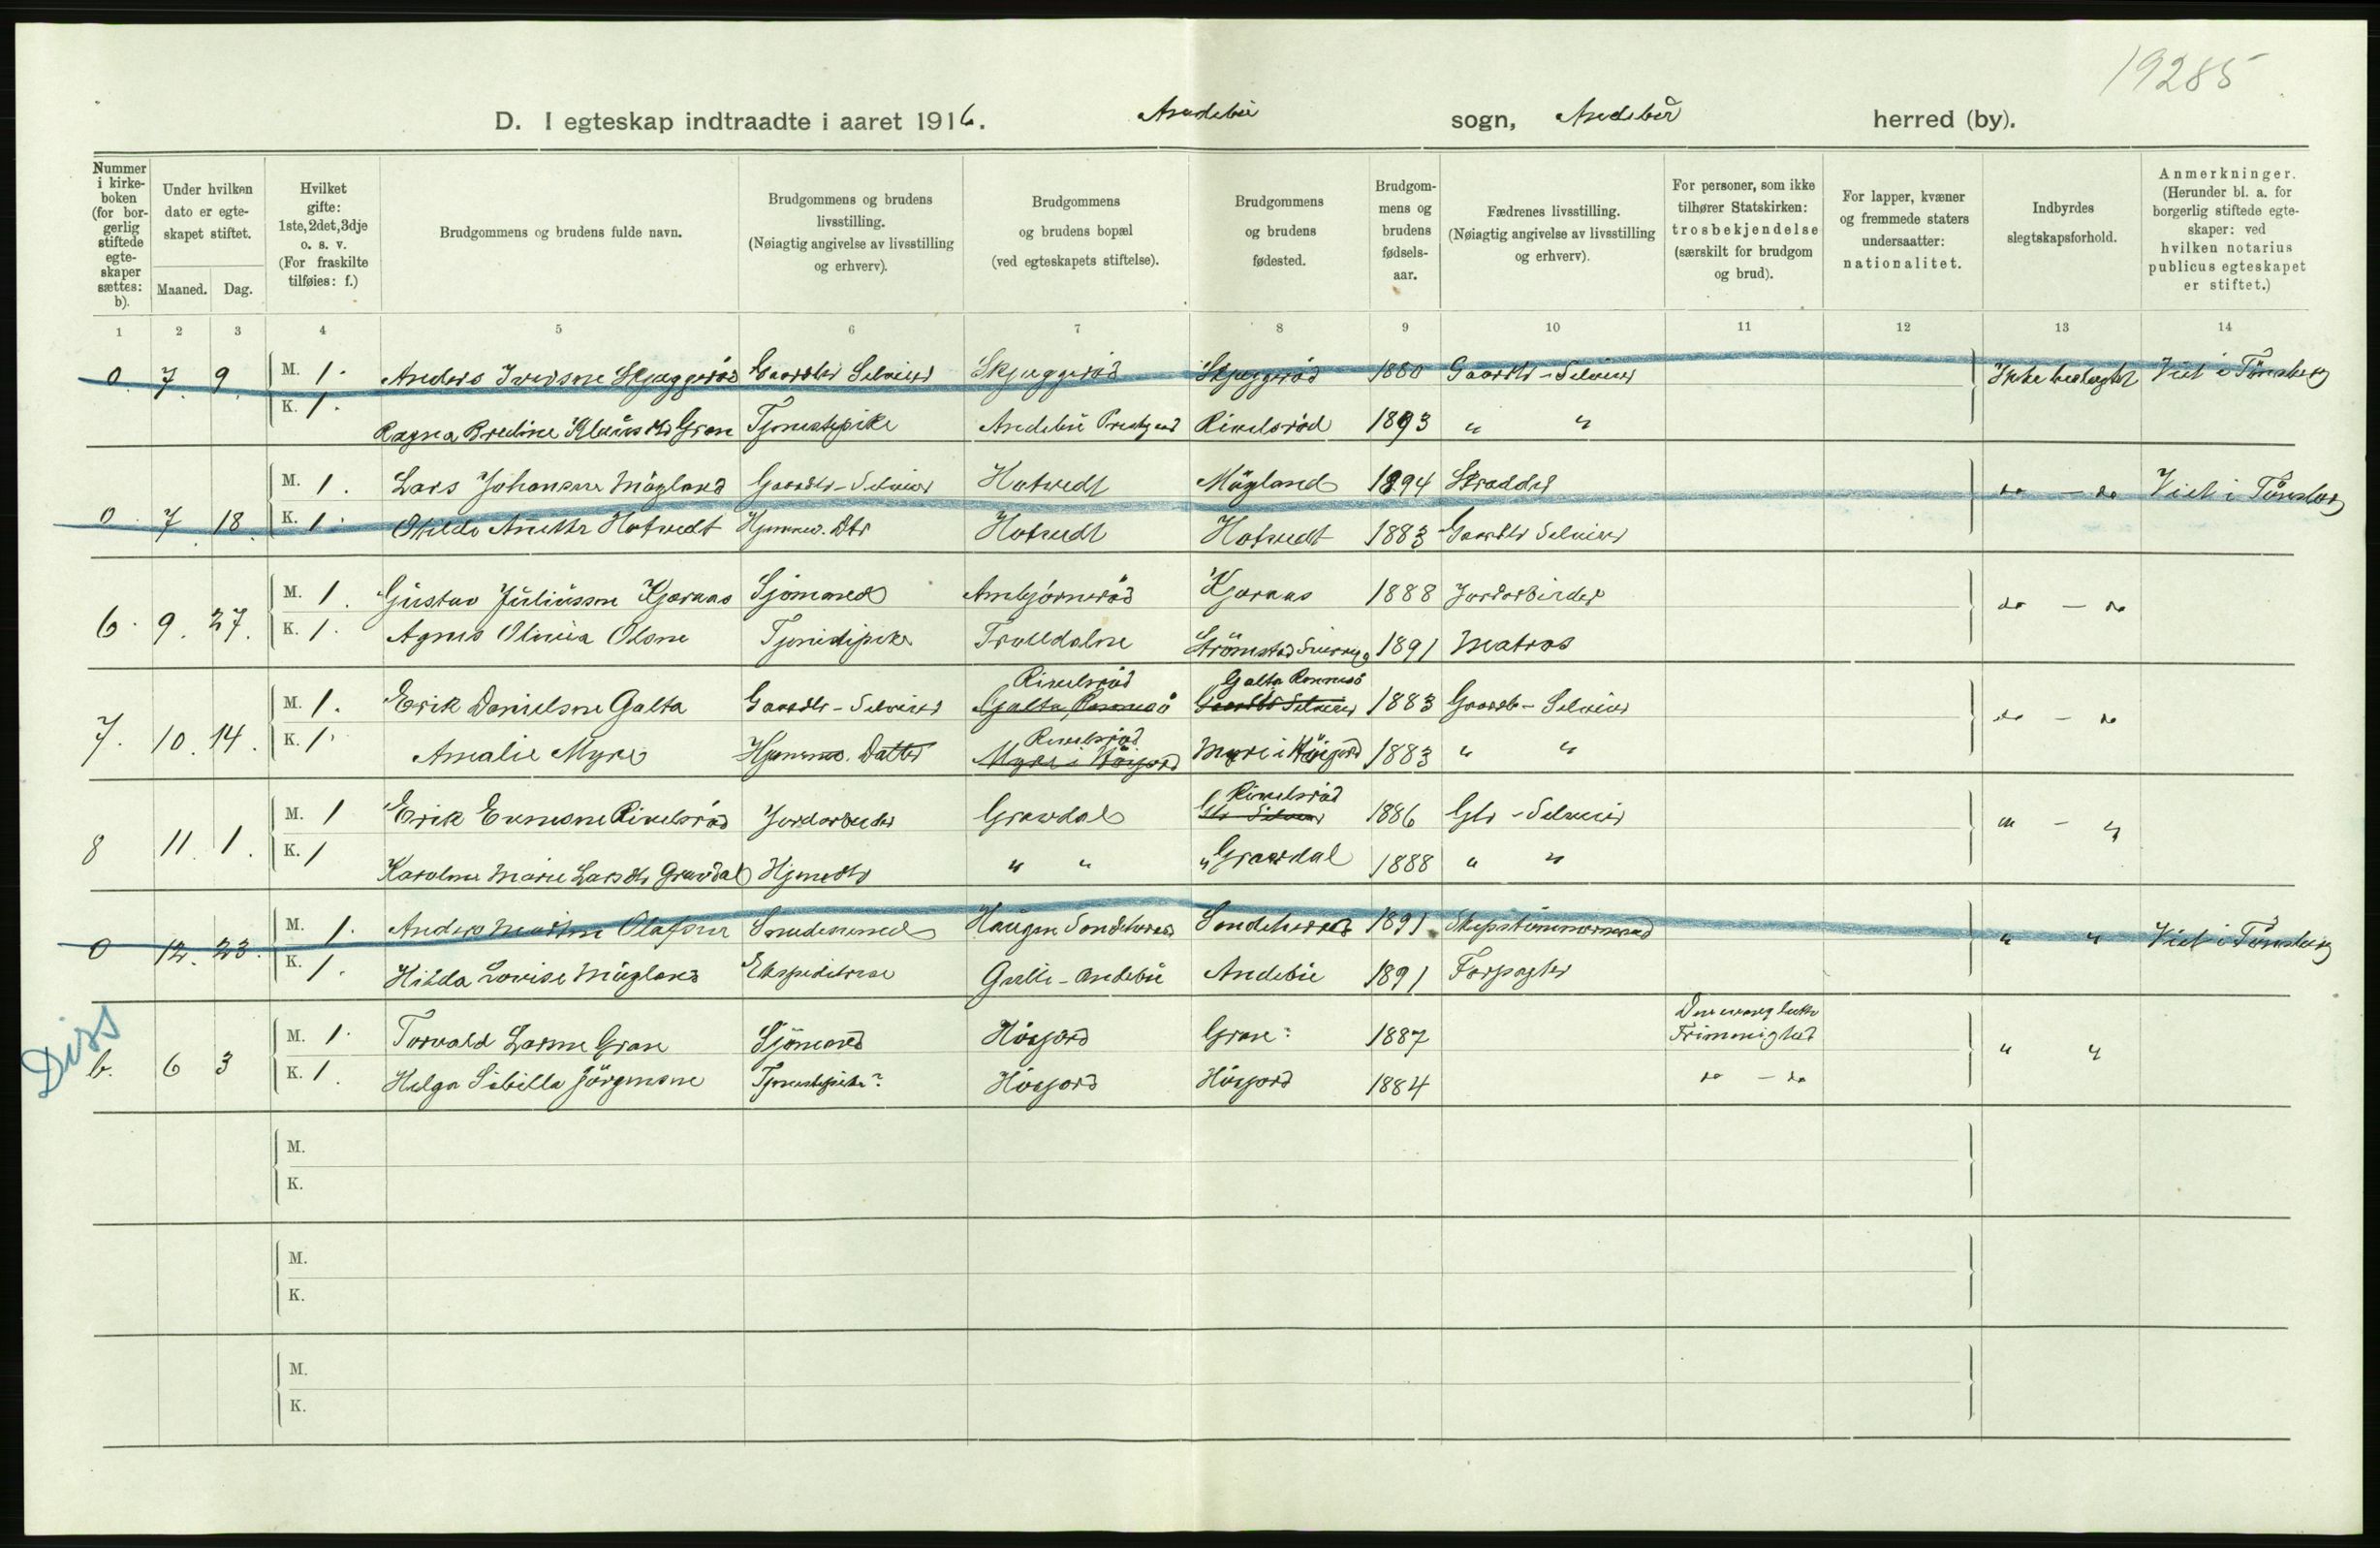 19285
D. I egteskap indtraadte i aaret 1916. Andebu sogn, Andebu herred (by).
Nummer i kirkeboken (for borgerlig stiftede egteskaper sættes: b).
Under hvilken dato er egteskapet stiftet.
Maaned. Dag.
Hvilket gifte: 1ste, 2det, 3dje o. s. v. (For fraskilte tilføies: f.)
Brudgommens og brudens fulde navn.
Brudgommens og brudens livsstilling. (Nøiagtig angivelse av livsstilling og erhverv).
Brudgommens og brudens bopæl (ved egteskapets stiftelse).
Brudgommens og brudens fødested.
Brudgommens og brudens fødselsaar.
Fædrenes livsstilling. (Nøiagtig angivelse av livsstilling og erhverv).
For personer, som ikke tilhører Statskirken: trosbekjendelse (særskilt for brudgom og brud).
For lapper, kvæner og fremmede staters undersaatter: nationalitet.
Indbyrdes slegtskapsforhold.
Anmerkninger. (Herunder bl. a. for borgerlig stiftede egteskaper: ved hvilken notarius publicus egteskapet er stiftet.)
1 2 3 4 5 6 7 8 9 10 11 12 13 14
0 7. 9. M. 1. Anders Iversen Skjuggerød Gaardbr Selveier Skjuggerød Skjuggerød 1880 Gaardbr - Selveier Ikke beslegtet Viet i Tönsberg
K. 1. Ragna Bredine Gran Tjenestepike Andebu Prestgaard 1893 " "
M. 1. Lars Johansen Møyland Gaardbr - Selveier Hotvedt Møyland 1894 Skrædder do - do Viet i Tönsberg
0 7. 18. K. 1. Anette Hotvedt Hjemmev. Dtr Hotvedt Hotvedt 1883 Gaardbr Selveier
M. 1. Gustav Juliussen Kjæraas Sjömand Ambjörnröd Kjæraas 1888 Jordarbeider do - do
6. 9. 27. K. 1. Agnes Olivia Olsen Tjenestepike Trolldalen Strömstad Sverrige 1891 Matros
Galta Rennesö
M. 1. Erik Danielsen Galta Gaardbr - Selveier Galta Rennesö Gaardbr Selveier 1883 Gaardb - Selveier do - do
7. 10. 14. K. 1. Amalie Myre Hjemmev. Datter Myre i Höijord Myre i Höijord 1883 " "
M. 1 Erik Jordarbeider Gravdal Gbr Selveier 1886 Gbr - Selveier " - "
8 11. 1. K. 1 Karoline Marie Larsdtr Gravdal Hjemmedtr " " " Gravdal 1888 " "
M. 1. Anders Martin Olafsen Snedkersvend Haugen Sandeherred Sandeherred 1891 Skipstömmermand " " Viet i Tönsberg
0 12. 23. K. 1. Hilda Lovise Møyland Ekspeditrise Andebu Andebu 1891 Forpagter
Diss
Den evang luth
Frimenighed
M. 1. Torvald Larsen Gran Sjömand Höijord Gran 1887 " "
b. 6 3 K. 1. Helga Sibilla Jörgensen Tjenestepike? Höijord Höijord 1884 do - do
M.
K.
M.
K.
M.
K.